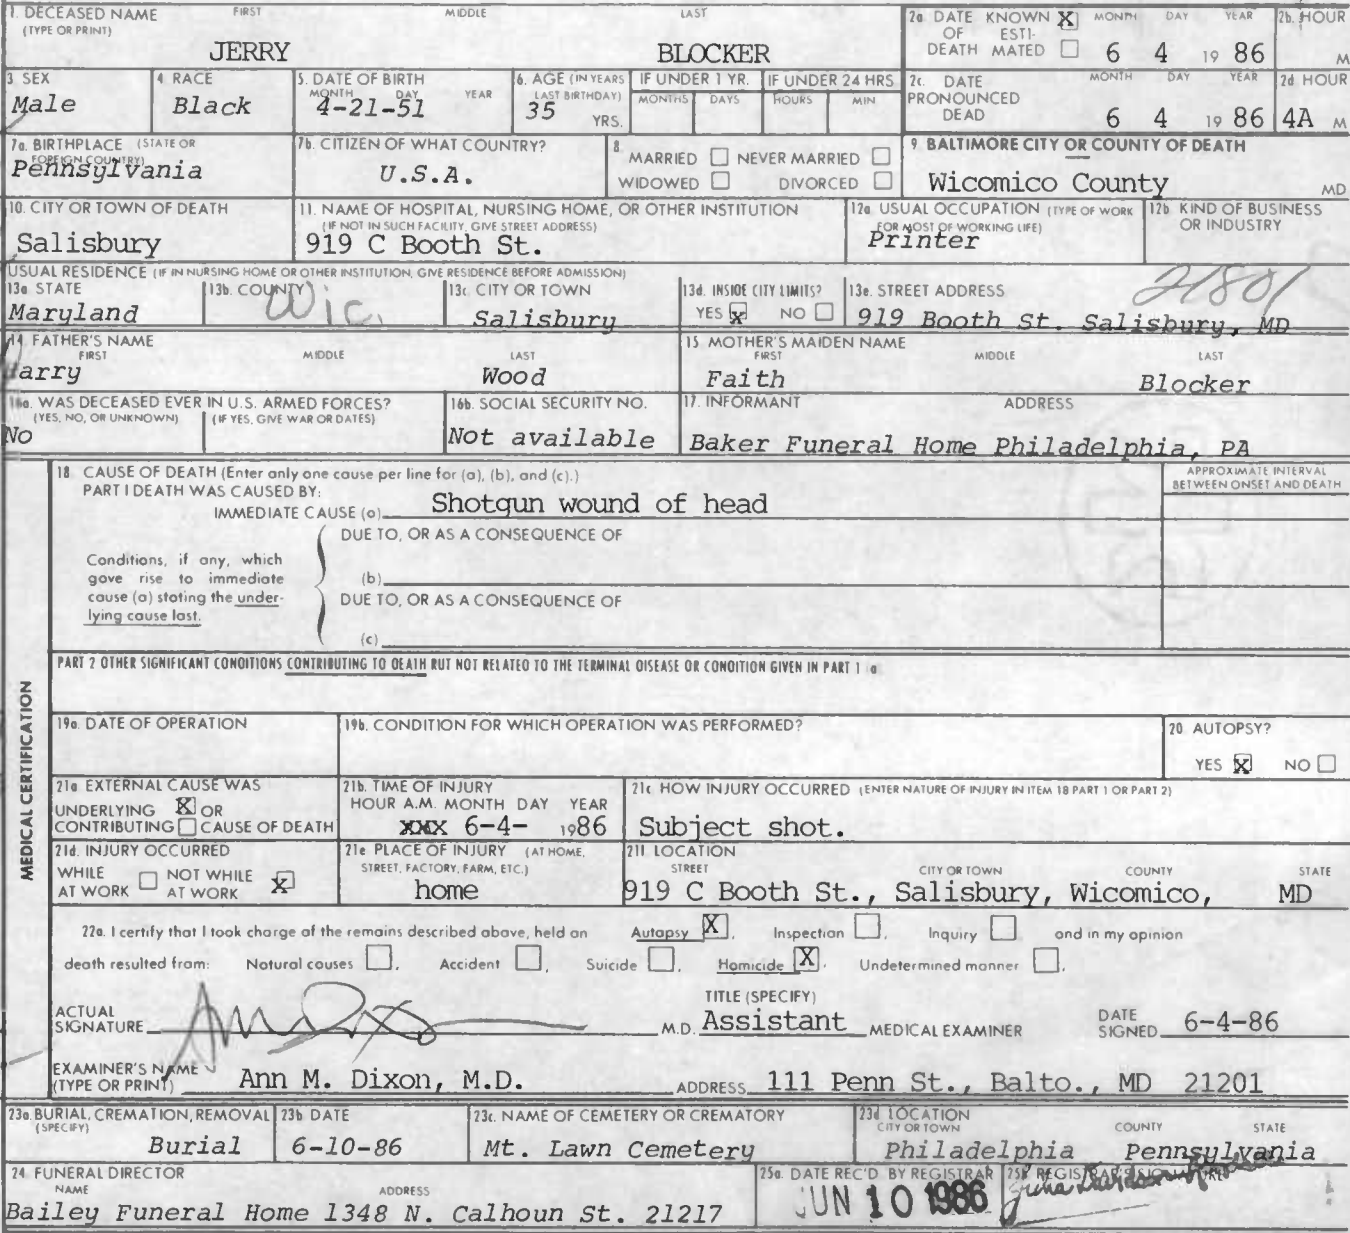 1. DECEASED NAME FIRST MIDDLE LAST
(TYPE OR PRINT)
JERRY BLOCKER
2a. DATE KNOWN X MONTH DAY YEAR
OF ESTI-
DEATH MATED 6 4 19 86
2b. HOUR
M
3 SEX
Male
4 RACE
Black
5. DATE OF BIRTH
MONTH DAY YEAR
4-21-51
6. AGE (IN YEARS
LAST BIRTHDAY)
35 YRS.
IF UNDER 1 YR.
MONTHS DAYS
IF UNDER 24 HRS
HOURS MIN
2c. DATE MONTH DAY YEAR
PRONOUNCED
DEAD 6 4 19 86
2d HOUR
4A M
7a. BIRTHPLACE (STATE OR
FOREIGN COUNTRY)
Pennsylvania
7b. CITIZEN OF WHAT COUNTRY?
U.S.A.
8.
MARRIED NEVER MARRIED
WIDOWED DIVORCED
9. BALTIMORE CITY OR COUNTY OF DEATH
Wicomico County MD
10. CITY OR TOWN OF DEATH
Salisbury
11. NAME OF HOSPITAL, NURSING HOME, OR OTHER INSTITUTION
(IF NOT IN SUCH FACILITY, GIVE STREET ADDRESS)
919 C Booth St.
12a. USUAL OCCUPATION (TYPE OF WORK
FOR MOST OF WORKING LIFE)
Printer
12b KIND OF BUSINESS
OR INDUSTRY
USUAL RESIDENCE (IF IN NURSING HOME OR OTHER INSTITUTION, GIVE RESIDENCE BEFORE ADMISSION)
13a STATE
Maryland
13b. COUNTY
Wic.
13c. CITY OR TOWN
Salisbury
13d. INSIDE CITY LIMITS?
YES X NO
13e. STREET ADDRESS
21801
919 Booth St. Salisbury, MD
14. FATHER'S NAME
FIRST MIDDLE LAST
Harry Wood
15 MOTHER'S MAIDEN NAME
FIRST MIDDLE LAST
Faith Blocker
16a. WAS DECEASED EVER IN U.S. ARMED FORCES?
(YES, NO, OR UNKNOWN) (IF YES, GIVE WAR OR DATES)
No
16b. SOCIAL SECURITY NO.
Not available
17. INFORMANT ADDRESS
Baker Funeral Home Philadelphia, PA
MEDICAL CERTIFICATION
18 CAUSE OF DEATH (Enter only one cause per line for (a), (b), and (c).)
PART I DEATH WAS CAUSED BY:
IMMEDIATE CAUSE (a) Shotgun wound of head
APPROXIMATE INTERVAL
BETWEEN ONSET AND DEATH
DUE TO, OR AS A CONSEQUENCE OF
Conditions, if any, which
gave rise to immediate
cause (a) stating the under-
lying cause last.
(b)
DUE TO, OR AS A CONSEQUENCE OF
(c)
PART 2 OTHER SIGNIFICANT CONDITIONS CONTRIBUTING TO DEATH BUT NOT RELATED TO THE TERMINAL DISEASE OR CONDITION GIVEN IN PART 1 a
19a. DATE OF OPERATION
19b. CONDITION FOR WHICH OPERATION WAS PERFORMED?
20 AUTOPSY?
YES X NO
21a EXTERNAL CAUSE WAS
UNDERLYING X OR
CONTRIBUTING CAUSE OF DEATH
21b. TIME OF INJURY
HOUR A.M. MONTH DAY YEAR
XXX 6-4- 1986
21c HOW INJURY OCCURRED (ENTER NATURE OF INJURY IN ITEM 18 PART 1 OR PART 2)
Subject shot.
21d. INJURY OCCURRED
WHILE AT WORK NOT WHILE AT WORK X
21e PLACE OF INJURY (AT HOME,
STREET, FACTORY, FARM, ETC.)
home
21f LOCATION
STREET CITY OR TOWN COUNTY STATE
919 C Booth St., Salisbury, Wicomico, MD
22a. I certify that I took charge of the remains described above, held an Autopsy X, Inspection , Inquiry and in my opinion
death resulted from: Natural causes , Accident , Suicide , Homicide X, Undetermined manner ,
ACTUAL
SIGNATURE Ann Dixon M.D.
TITLE (SPECIFY)
Assistant MEDICAL EXAMINER
DATE
SIGNED 6-4-86
EXAMINER'S NAME
(TYPE OR PRINT) Ann M. Dixon, M.D. ADDRESS 111 Penn St., Balto., MD 21201
23a. BURIAL, CREMATION, REMOVAL
(SPECIFY)
Burial
23b DATE
6-10-86
23c. NAME OF CEMETERY OR CREMATORY
Mt. Lawn Cemetery
23d LOCATION
CITY OR TOWN COUNTY STATE
Philadelphia Pennsylvania
24 FUNERAL DIRECTOR
NAME ADDRESS
Bailey Funeral Home 1348 N. Calhoun St. 21217
25a. DATE REC'D BY REGISTRAR
JUN 10 1986
25b REGISTRAR'S SIGNATURE